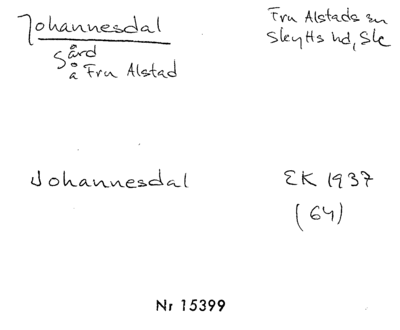 Johannesdal
Fru Alstads sn
Skytts hd, Sk
gård
å Fru Alstad
Johannesdal
EK 1937
(64)
Nr 15399